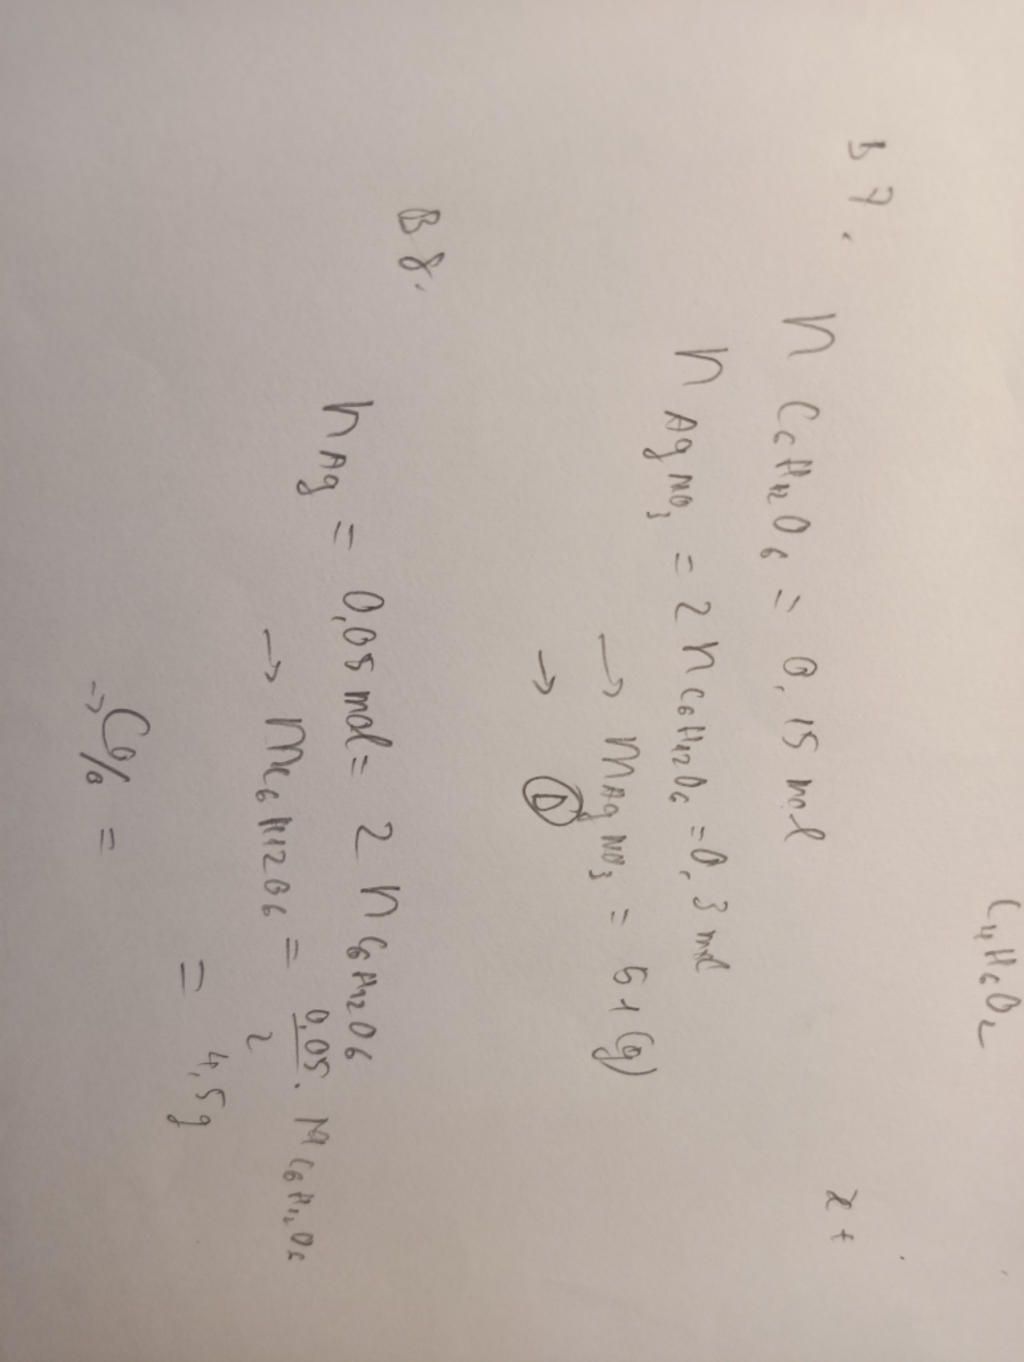 C4H6O2
B7.
x+
n C6H12O6 = 0,15 mol
n AgNO3 = 2 n C6H12O6 = 0,3 mol
→ m AgNO3 = 51 (g)
→ D
B8.
n Ag = 0,05 mol = 2 n C6H12O6
→ m C6H12O6 = 0,05/2 . M C6H12O6
= 4,5g
→ C% =